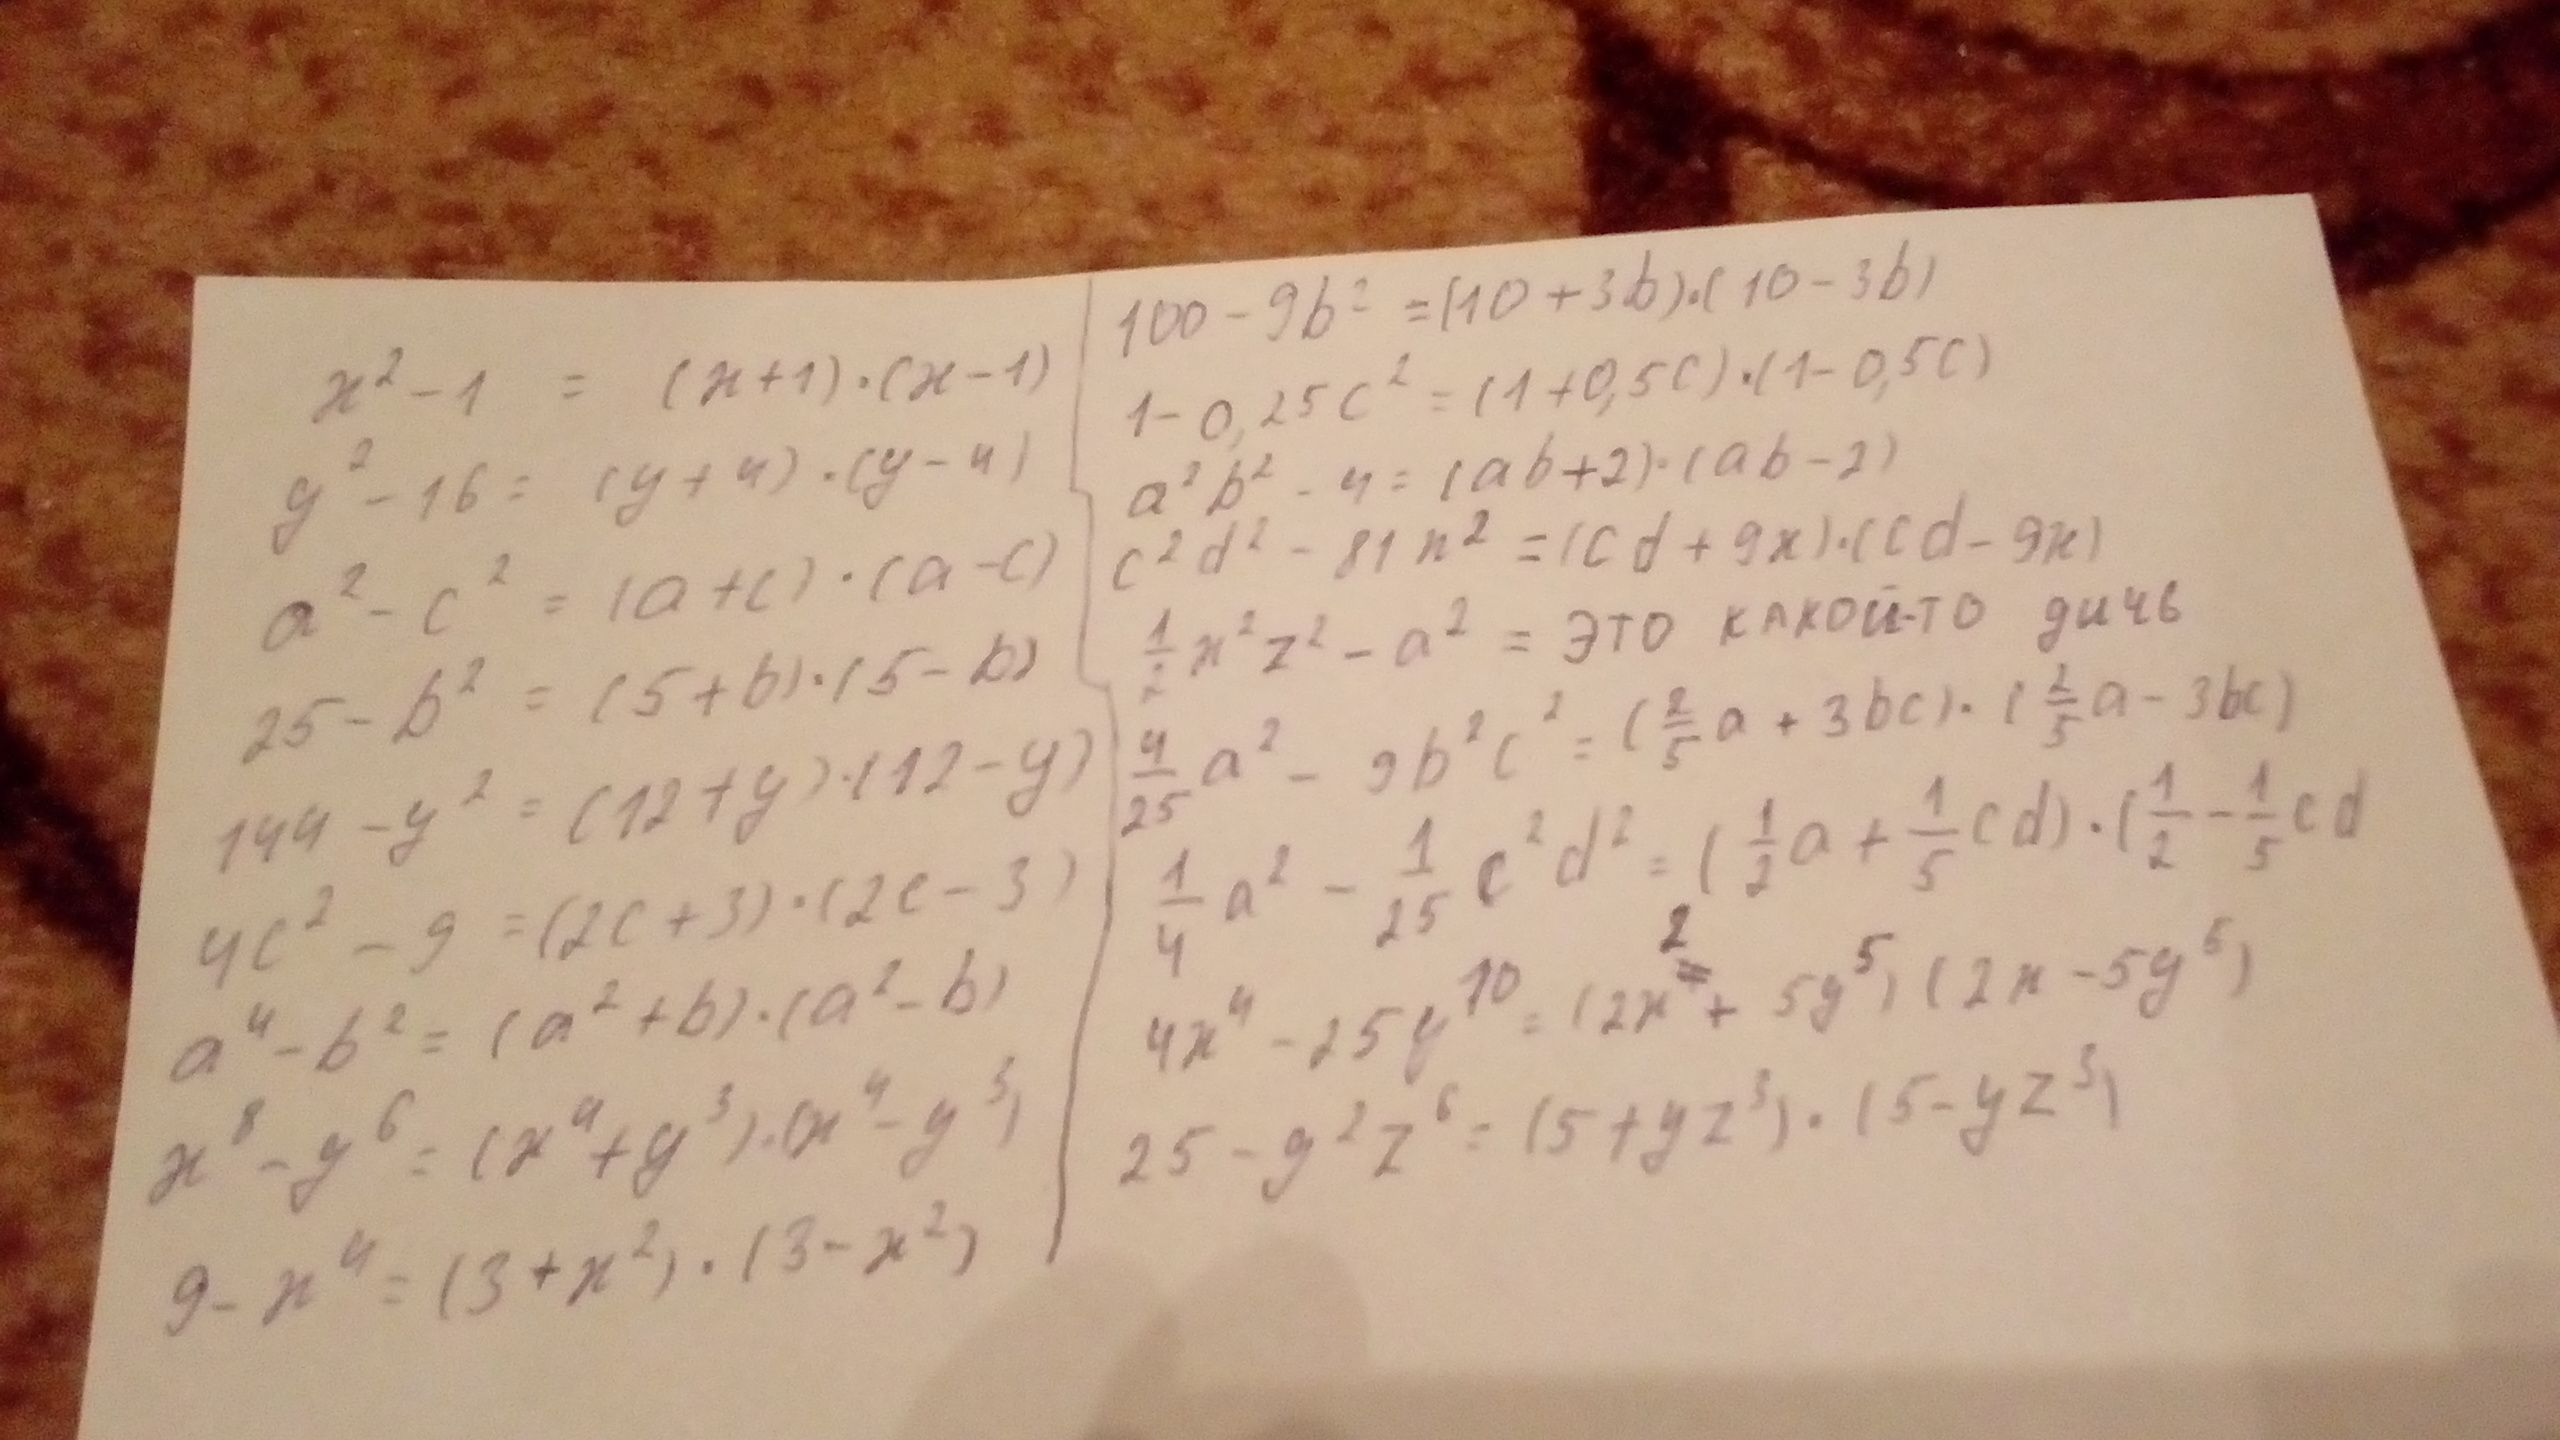 x² - 1 = (x+1)·(x-1)
y² - 16 = (y+4)·(y-4)
a² - c² = (a+c)·(a-c)
25 - b² = (5+b)·(5-b)
144 - y² = (12+y)·(12-y)
4c² - 9 = (2c+3)·(2c-3)
a⁴ - b² = (a²+b)·(a²-b)
x⁸ - y⁶ = (x⁴+y³)·(x⁴-y³)
9 - x⁴ = (3+x²)·(3-x²)
100 - 9b² = (10+3b)·(10-3b)
1 - 0,25c² = (1+0,5c)·(1-0,5c)
a²b² - 4 = (ab+2)·(ab-2)
c²d² - 81x² = (cd+9x)·(cd-9x)
1/2 x²z² - a² = ЭТО КАКОЙ-ТО ДИЧЬ
4/25 a² - 9b²c² = (2/5 a + 3bc)·(2/5 a - 3bc)
1/4 a² - 1/25 c²d² = (1/2 a + 1/5 cd)·(1/2 - 1/5 cd
4x⁴ - 25y¹⁰ = (2x² + 5y⁵)(2x - 5y⁵)
25 - y²z⁶ = (5+yz³)·(5-yz³)